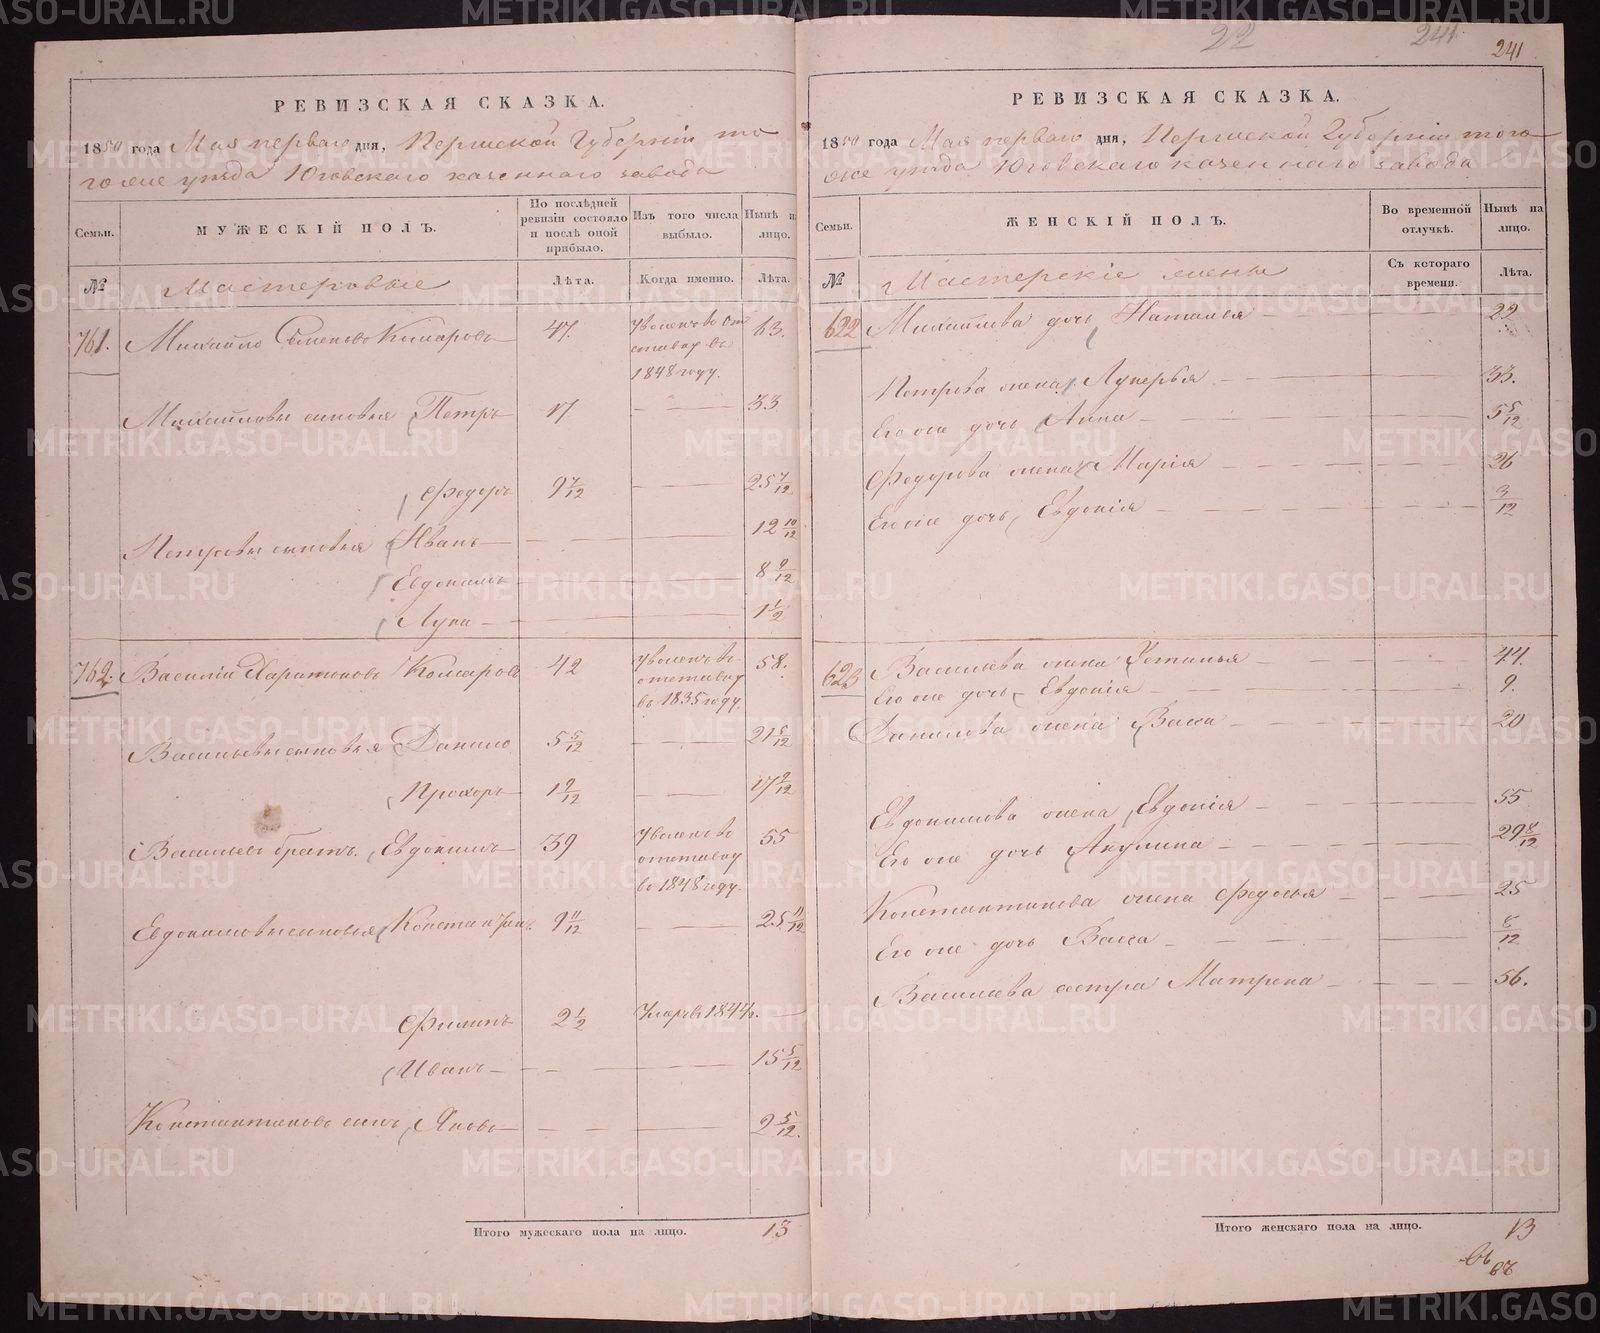 22 241 241
РЕВИЗСКАЯ СКАЗКА.
1850 года Мая перваго дня, Пермской Губерніи то
гоже уѣзда Юговскаго казеннаго завода
Семьи.
МУЖЕСКІЙ ПОЛЪ.
По послѣдней ревизіи состояло и послѣ оной прибыло.
Изъ того числа выбыло.
Нынѣ на лицо.
№ Мастеровые Лѣта. Когда именно. Лѣта.
761. Михайло Семеновъ Комаровъ 47. уволенъ въ от 63.
ставку въ
1848 году.
Михайловы сыновья Петръ 17 33
Федоръ 9 7/12 25 7/12
Петровы сыновья Иванъ 12 10/12
Евдокимъ 8 9/12
Лука 1 1/2
762. Василій Харитоновъ Комаровъ 42 уволенъ въ 58.
отставку
въ 1835 году.
Васильевы сыновья Данило 5 5/12 21 5/12
Прохоръ 1 9/12 17 9/12
Васильевъ братъ. Евдокимъ 39 уволенъ въ 55
отставку
въ 1848 году.
Евдокимовы сыновья Константинъ 9 11/12 25 11/12
Филипъ 2 1/2 Умеръ 1844 г.
Иванъ 15 5/12
Константиновъ сынъ Яковъ 2 5/12.
Итого мужескаго пола на лицо. 13
РЕВИЗСКАЯ СКАЗКА.
1850 года Мая перваго дня, Пермской Губерніи того
же уѣзда Юговскаго казеннаго завода.
Семьи.
ЖЕНСКІЙ ПОЛЪ.
Во временной отлучкѣ.
Нынѣ на лицо.
№ Мастерскіе жены Съ котораго времени. Лѣта.
622 Михайлова дочь Наталья 22
Петрова жена Лукерья 33.
Его же дочь Анна 5 5/12
Федорова жена Марія 26
Его же дочь Евдокія 3/12
623 Васильева жена Устинья 44.
Его же дочь Евдокія 9.
Данилова жена Васса 20
Евдокимова жена Евдокія 55
Его же дочь Акулина 29 8/12
Константинова жена Федосья 25
Его же дочь Васса 6/12
Васильева сестра Матрена 56.
Итого женскаго пола на лицо. 13
METRIKI.GASO-URAL.RU